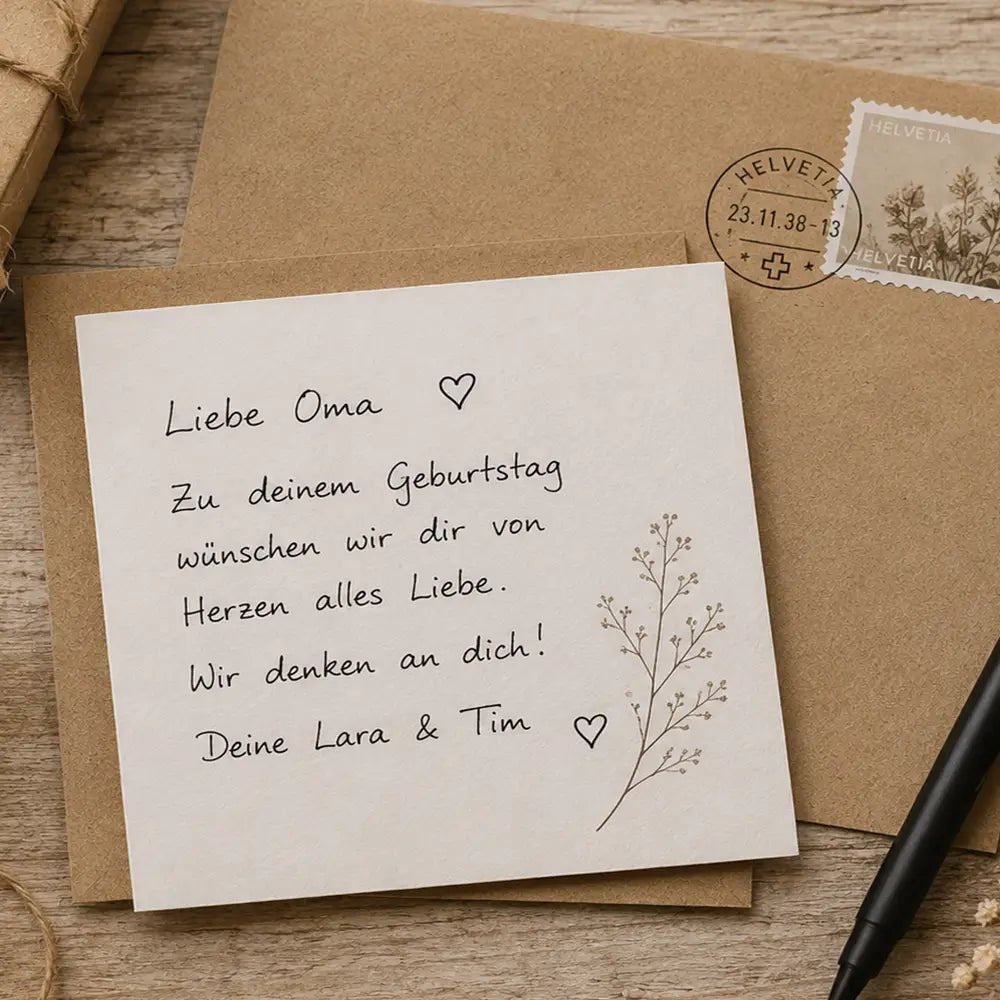 HELVETIA
HELVETIA
23.11.38-13
HELVETIA
Liebe Oma
Zu deinem Geburtstag
wünschen wir dir von
Herzen alles Liebe.
Wir denken an dich!
Deine Lara & Tim